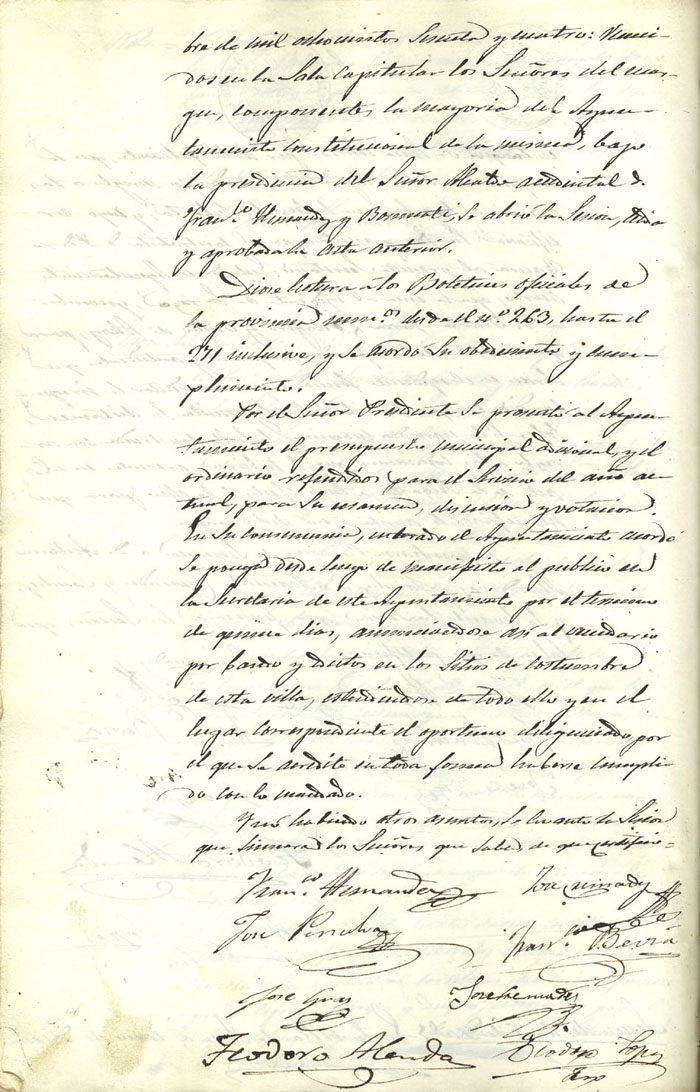 bre de mil ochocientos sesenta y cuatro: Reuni-
dos en la Sala Capitular los Señores del mar-
gen, componentes la mayoria del Ayun-
tamiento Constitucional de la misma, bajo
la presidencia del Señor Alcalde accidental D.
Fran.co Hernandez y, se abrió la Sesion, leida
y aprobada la acta anterior.
Diose lectura á los Boletines oficiales de
la provincia num.os desde el n.o 263, hasta el
271 inclusive, y se acordó su obedecimiento y cum-
plimiento.
Por el Señor Presidente se presentó al Ayun-
tamiento el presupuesto municipal adicional, y el
ordinario refundidos para el Servicio del año ac-
tual, para su examen, discusion y votacion.
En su consecuencia, enterado el Ayuntamiento acordó
se ponga desde luego de manifiesto al publico en
la Secretaria de este Ayuntamiento por el termino
de quince dias, anunciandose asi al vecindario
por bando y edictos en los Sitios de costumbre
de esta villa, estendiendose de todo ello y en el
lugar correspondiente el oportuno diligenciado, por
el que se acredite en toda forma haberse cumpli-
do con lo mandado.
Y no habiendo otros asuntos, se levantó la Sesion
que firmará los Señores que saben, de que certifico.
Fran.co Hernandez
José
Fran.co Beviá
José Gras
José
Teodoro Alenda
Teodoro Lopez